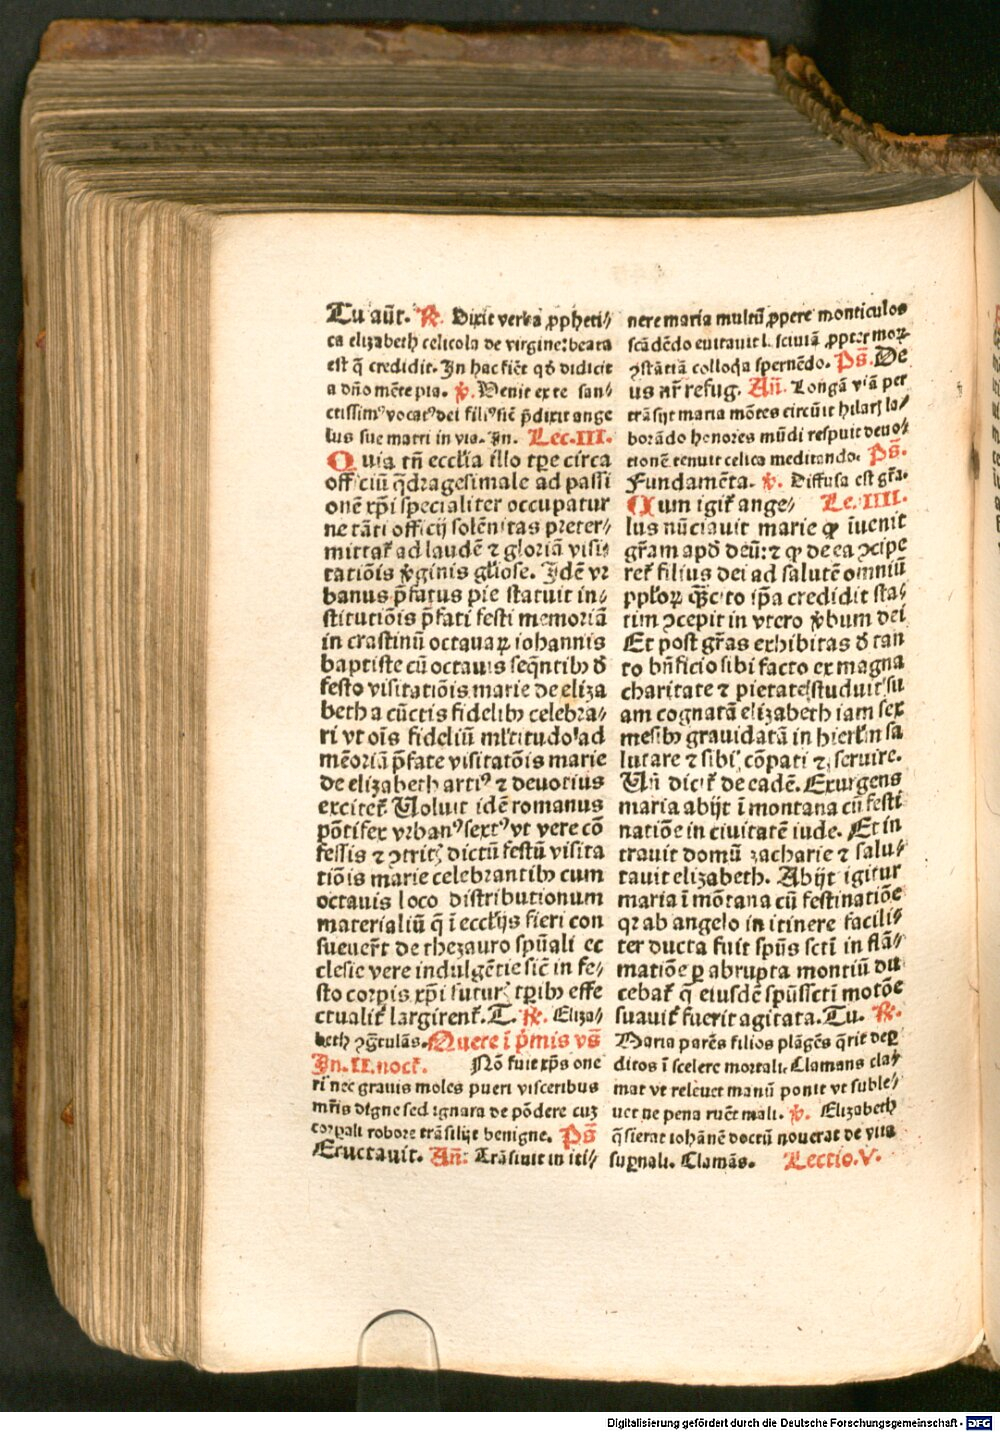 Tu aūt. ℟. Dixit verba ꝓpheti⸗
ca elizabeth celicola de virgine: beata
est q̄ credidit. In hac fiēt qđ didicit
a dn̄o mēte pia. ℣. Uenit ex te san⸗
ctissimꝰ vocatꝰ dei filiꝰ sic̄ p̄dixit ange
lus sue matri in via. In. Lec. III.
Quia tn̄ ecclīa illo tꝑe circa
officiū q̄dragesimale ad passi
onē xp̄i specialiter occupatur
ne tāti officij solēnitas preter⸗
mittat᷑ ad laudē ⁊ gloriā visi⸗
tatiōis v̄ginis gl̄iose. Idē vr
banus p̄fatus pie statuit in⸗
stitutiōis p̄fati festi memoriā
in crastinū octauaꝝ iohannis
baptiste cū octauis seq̄ntibꝫ đ
festo visitatiōis marie de eliza
beth a cūctis fidelibꝫ celebra⸗
ri vt oīs fideliū ml̄titudo ad
mēoriā p̄fate visitatōis marie
de elizabeth artiꝰ ⁊ deuotius
excitet᷑. Uoluit idē romanus
pōtifex vrbanꝰ sextꝰ vt vere cō
fessis ⁊ ↄtritꝭ dictū festū visita
tiōis marie celebrantibꝫ cum
octauis loco distributionum
materialiū q̄ ī eccl̄ijs fieri con
sueuer̄t de thezauro spūali ec
clesie vere indulgētie sic̄ in fe⸗
sto corpis xp̄i futurꝭ tꝑibꝫ effe
ctualit᷑ largirent᷑. T. ℟. Eliza⸗
beth ↄgr̄tulās. Quere ī p̄mis vs̄
In. II. noct᷑. Nō fuit xp̄s one
ri nec grauis moles pueri visceribus
mr̄is digne sed ignara de pōdere cuꝫ
corꝑali robore trāsilijt benigne. Ps̄
Eructauit. An̄. Trāsiuit in iti⸗
nere maria multū ꝓpere monticulos
scādēdo euitauit lasciuiā ꝓpter mor
ↄstātiā colloq̄a spernēdo. Ps̄. De
us nr̄ refug. An̄. Longā viā per
trāsijt maria mōtes circūit hilarꝭ la⸗
borādo honores mūdi respuit deuo⸗
tionē tenuit celica meditando. Ps̄.
Fundamēta. ℣. Diffusa est gr̄a.
Cum igit᷑ ange⸗ Le. IIII.
lus nūciauit marie ꝙ īuenit
gr̄am apđ deū: ⁊ ꝙ de ea ↄcipe
ret᷑ filius dei ad salutē omniū
ppl̄oꝝ q̄ꝫcito ip̄a credidit sta⸗
tim ↄcepit in vtero v̄bum dei
Et post gr̄as exhibitas đ tan
to bn̄ficio sibi facto ex magna
charitate ⁊ pietate studuit su
am cognatā elizabeth iam sex
mesibꝫ grauidatā in hierl̄m sa
lutare ⁊ sibi cōpati ⁊ seruire.
Un̄ dicit᷑ de eadē. Exurgens
maria abijt ī montana cū festi
natiōe in ciuitatē iude. Et in
trauit domū zacharie ⁊ salu⸗
tauit elizabeth. Abijt igitur
maria ī mōtana cū festinatiōe
qꝛ ab angelo in itinere facili⸗
ter ducta fuit spūs sct̄i in flā⸗
matiōe ꝑ abrupta montiū du
cebat᷑ q̄ eiusdē spūssct̄i motōe
suauit᷑ fuerit agitata. Tu. ℟.
Maria parēs filios plāgēs q̄rit deꝑ
ditos ī scelere mortali. Clamans cla⸗
mat vt releuet manū ponit vt suble⸗
uet ne pena ruēt mali. ℣. Elizabeth
q̄sierat iohānē doctū nouerat de vita
suꝑnali. Clamās. Lectio. V.
Digitalisierung gefördert durch die Deutsche Forschungsgemeinschaft - DFG